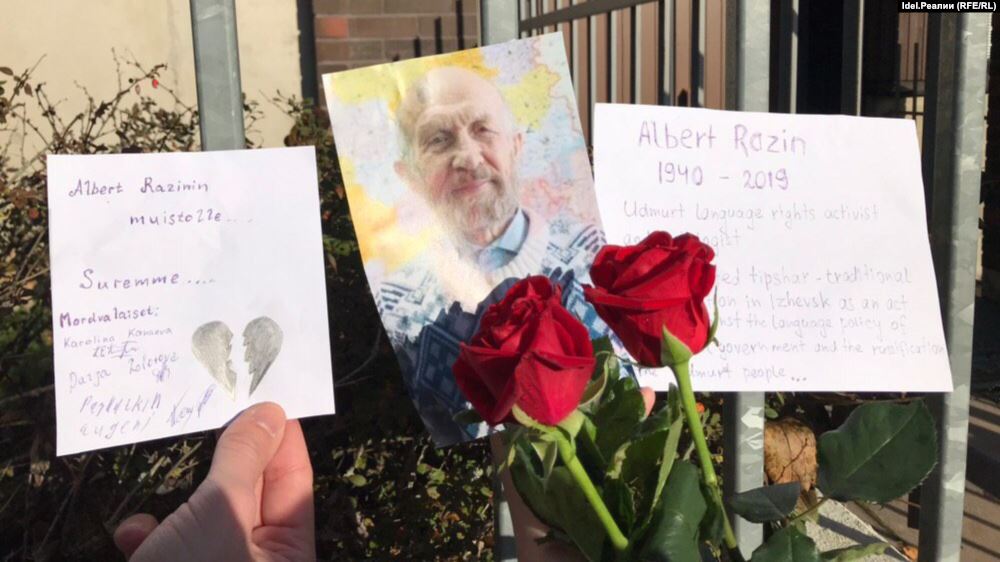 Idel.Реалии (RFE/RL)
Albert Razinin
muistolle....
Suremme....
Mordvalaiset:
Karolina Kanaeva
Darja
Eugeni
Albert Razin
1940 - 2019
Udmurt language rights activist
tipshar - traditional
in Izhevsk as an act
the language policy of
government and the russification
Udmurt people...